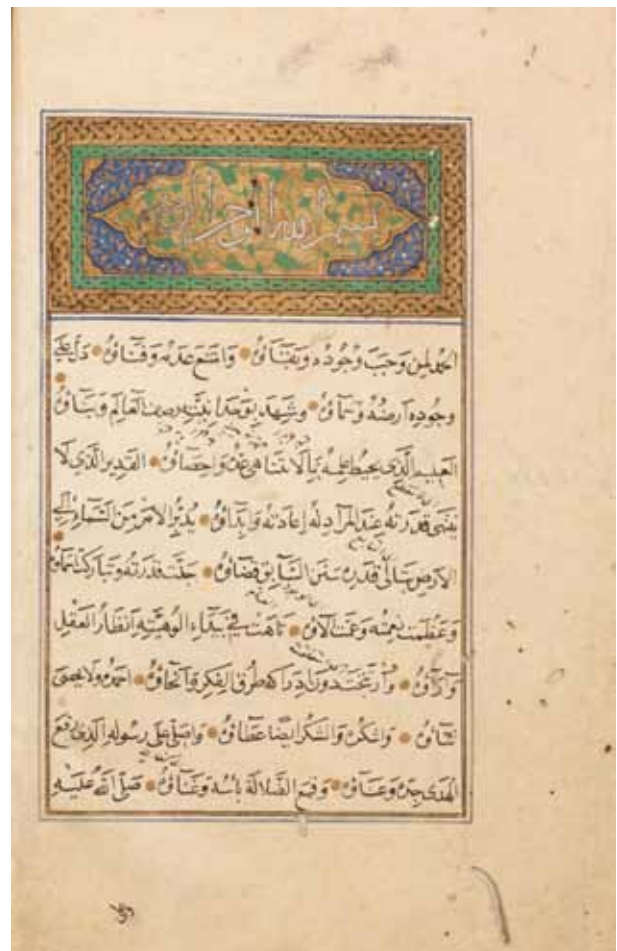 بسم الله الرحمن الرحيم
الحمد لمن وجب وجوده وبقاؤه وامتنع عدمه وفناؤه دل على
وجوده ارضه وسماؤه وشهد بوحدانيته رصف العالم وبناؤه
العليم الذي يحيط علمه بما لا يتناهى عده واحصاؤه القدير الذي لا
تنتهي قدرته عند المراد له إعادته وابداؤه يدبر الامر من السماء إلى
الارض بتالي قدره سنن السابق قضاؤه جلت قدرته وتباركت اسماؤه
وعظمت نعمته وعمت آلاؤه تاهت في بيداء الوهيته انظار العقل
وآراؤه وارتجت دون ادراكه طرق الفكر وانحاؤه احمده ولا يحصى
ثناؤه واشكره والشكر ايضا عطاؤه واصلي على رسوله الذي رفع
الهدى جده وعناؤه وقمع الضلالة بأسه وغناؤه صلى الله عليه